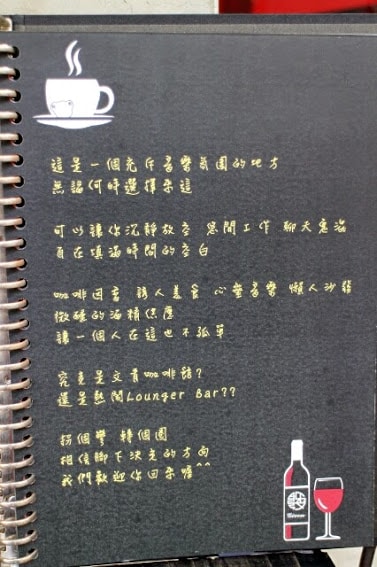 這是一個充斥音樂氛圍的地方
無論何時選擇來這
可以讓你沉靜放空 悠閒工作 聊天意滿
自在填滿時間的空白
咖啡因香 誘人美食 心靈音樂 懶人沙發
微醺的酒精供應
讓一個人在這也不孤單
究竟是文青咖啡館?
還是熱鬧Lounger Bar??
拐個彎 轉個圈
相信腳下決定的方向
我們歡迎你回來喔^^